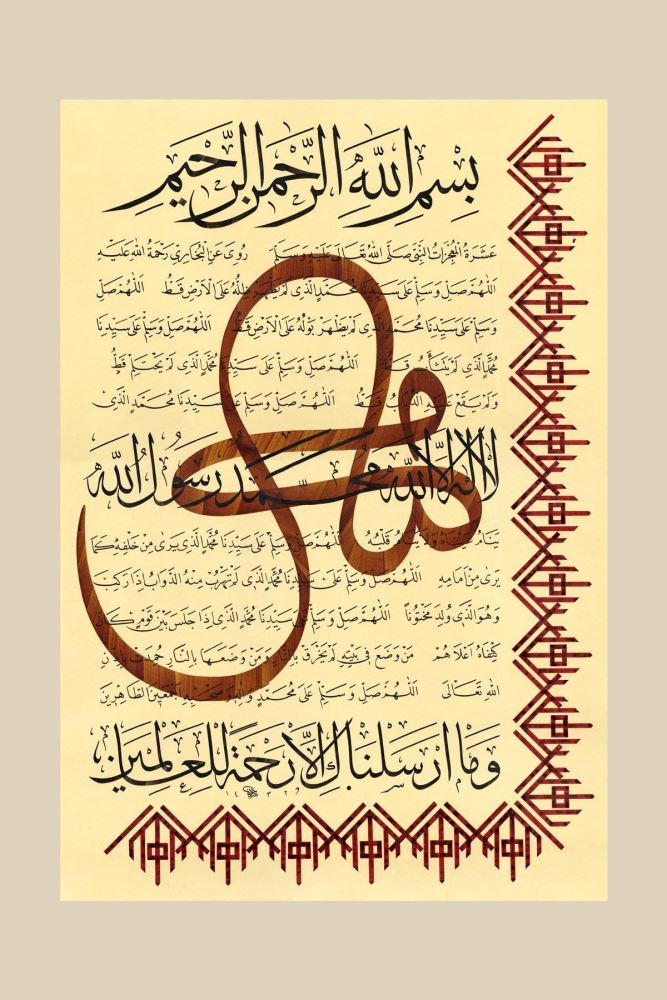 بِسْمِ اللهِ الرَّحْمٰنِ الرَّحِيْمِ
عَشَرَةُ الْمُعْجِزَاتُ النَّبِيِّ صَلَّى اللهُ تَعَالَى عَلَيْهِ وَسَلَّمَ رُوِىَ عَنِ الْبُخَارِىِّ رَحْمَةُ اللهِ عَلَيْهِ
اَللّٰهُمَّ صَلِّ وَسَلِّمْ عَلَى سَيِّدِنَا مُحَمَّدٍ الَّذِى لَمْ يَظْهَرْ ظِلُّهُ عَلَى الْاَرْضِ قَطُّ اَللّٰهُمَّ صَلِّ
وَسَلِّمْ عَلَى سَيِّدِنَا مُحَمَّدٍ الَّذِى لَمْ يَظْهَرْ بَوْلُهُ عَلَى الْاَرْضِ قَطُّ اَللّٰهُمَّ صَلِّ وَسَلِّمْ عَلَى سَيِّدِنَا
مُحَمَّدٍ الَّذِى لَمْ يَتَثَأَّبْ قَطُّ اَللّٰهُمَّ صَلِّ وَسَلِّمْ عَلَى سَيِّدِنَا مُحَمَّدٍ الَّذِى لَمْ يَحْتَلِمْ قَطُّ
وَلَمْ يَقَعْ عَلَيْهِ الذُّبَابُ قَطُّ اَللّٰهُمَّ صَلِّ وَسَلِّمْ عَلَى سَيِّدِنَا مُحَمَّدٍ الَّذِى
لَا اِلٰهَ اِلَّا اللهُ مُحَمَّدٌ رَسُولُ اللهِ
يَنَامُ عَيْنَاهُ وَلَا يَنَامُ قَلْبُهُ اَللّٰهُمَّ صَلِّ وَسَلِّمْ عَلَى سَيِّدِنَا مُحَمَّدٍ الَّذِى يَرٰى مِنْ خَلْفِهِ كَمَا
يَرٰى مِنْ اَمَامِهِ اَللّٰهُمَّ صَلِّ وَسَلِّمْ عَلَى سَيِّدِنَا مُحَمَّدٍ الَّذِى لَمْ تَهْرُبْ مِنْهُ الدَّوَابُّ اِذَا رَكِبَ
وَهُوَ الَّذِى وُلِدَ مَخْتُونًا اَللّٰهُمَّ صَلِّ وَسَلِّمْ عَلَى سَيِّدِنَا مُحَمَّدٍ الَّذِى اِذَا جَلَسَ بَيْنَ قَوْمٍ كَانَ
كِتْفَاهُ اَعْلَاهُمْ مَنْ وَضَعَ فِى بَيْتِهِ لَمْ يَحْرَقْ بِالنَّارِ وَمَنْ وَضَعَهَا بِالنَّارِ خَمِدَتْ بِاِذْنِ
اللهِ تَعَالَى اَللّٰهُمَّ صَلِّ وَسَلِّمْ عَلَى مُحَمَّدٍ وَاٰلِهِ وَصَحْبِهِ اَجْمَعِينَ الطَّاهِرِينَ
وَمَا اَرْسَلْنَاكَ اِلَّا رَحْمَةً لِلْعَالَمِينَ